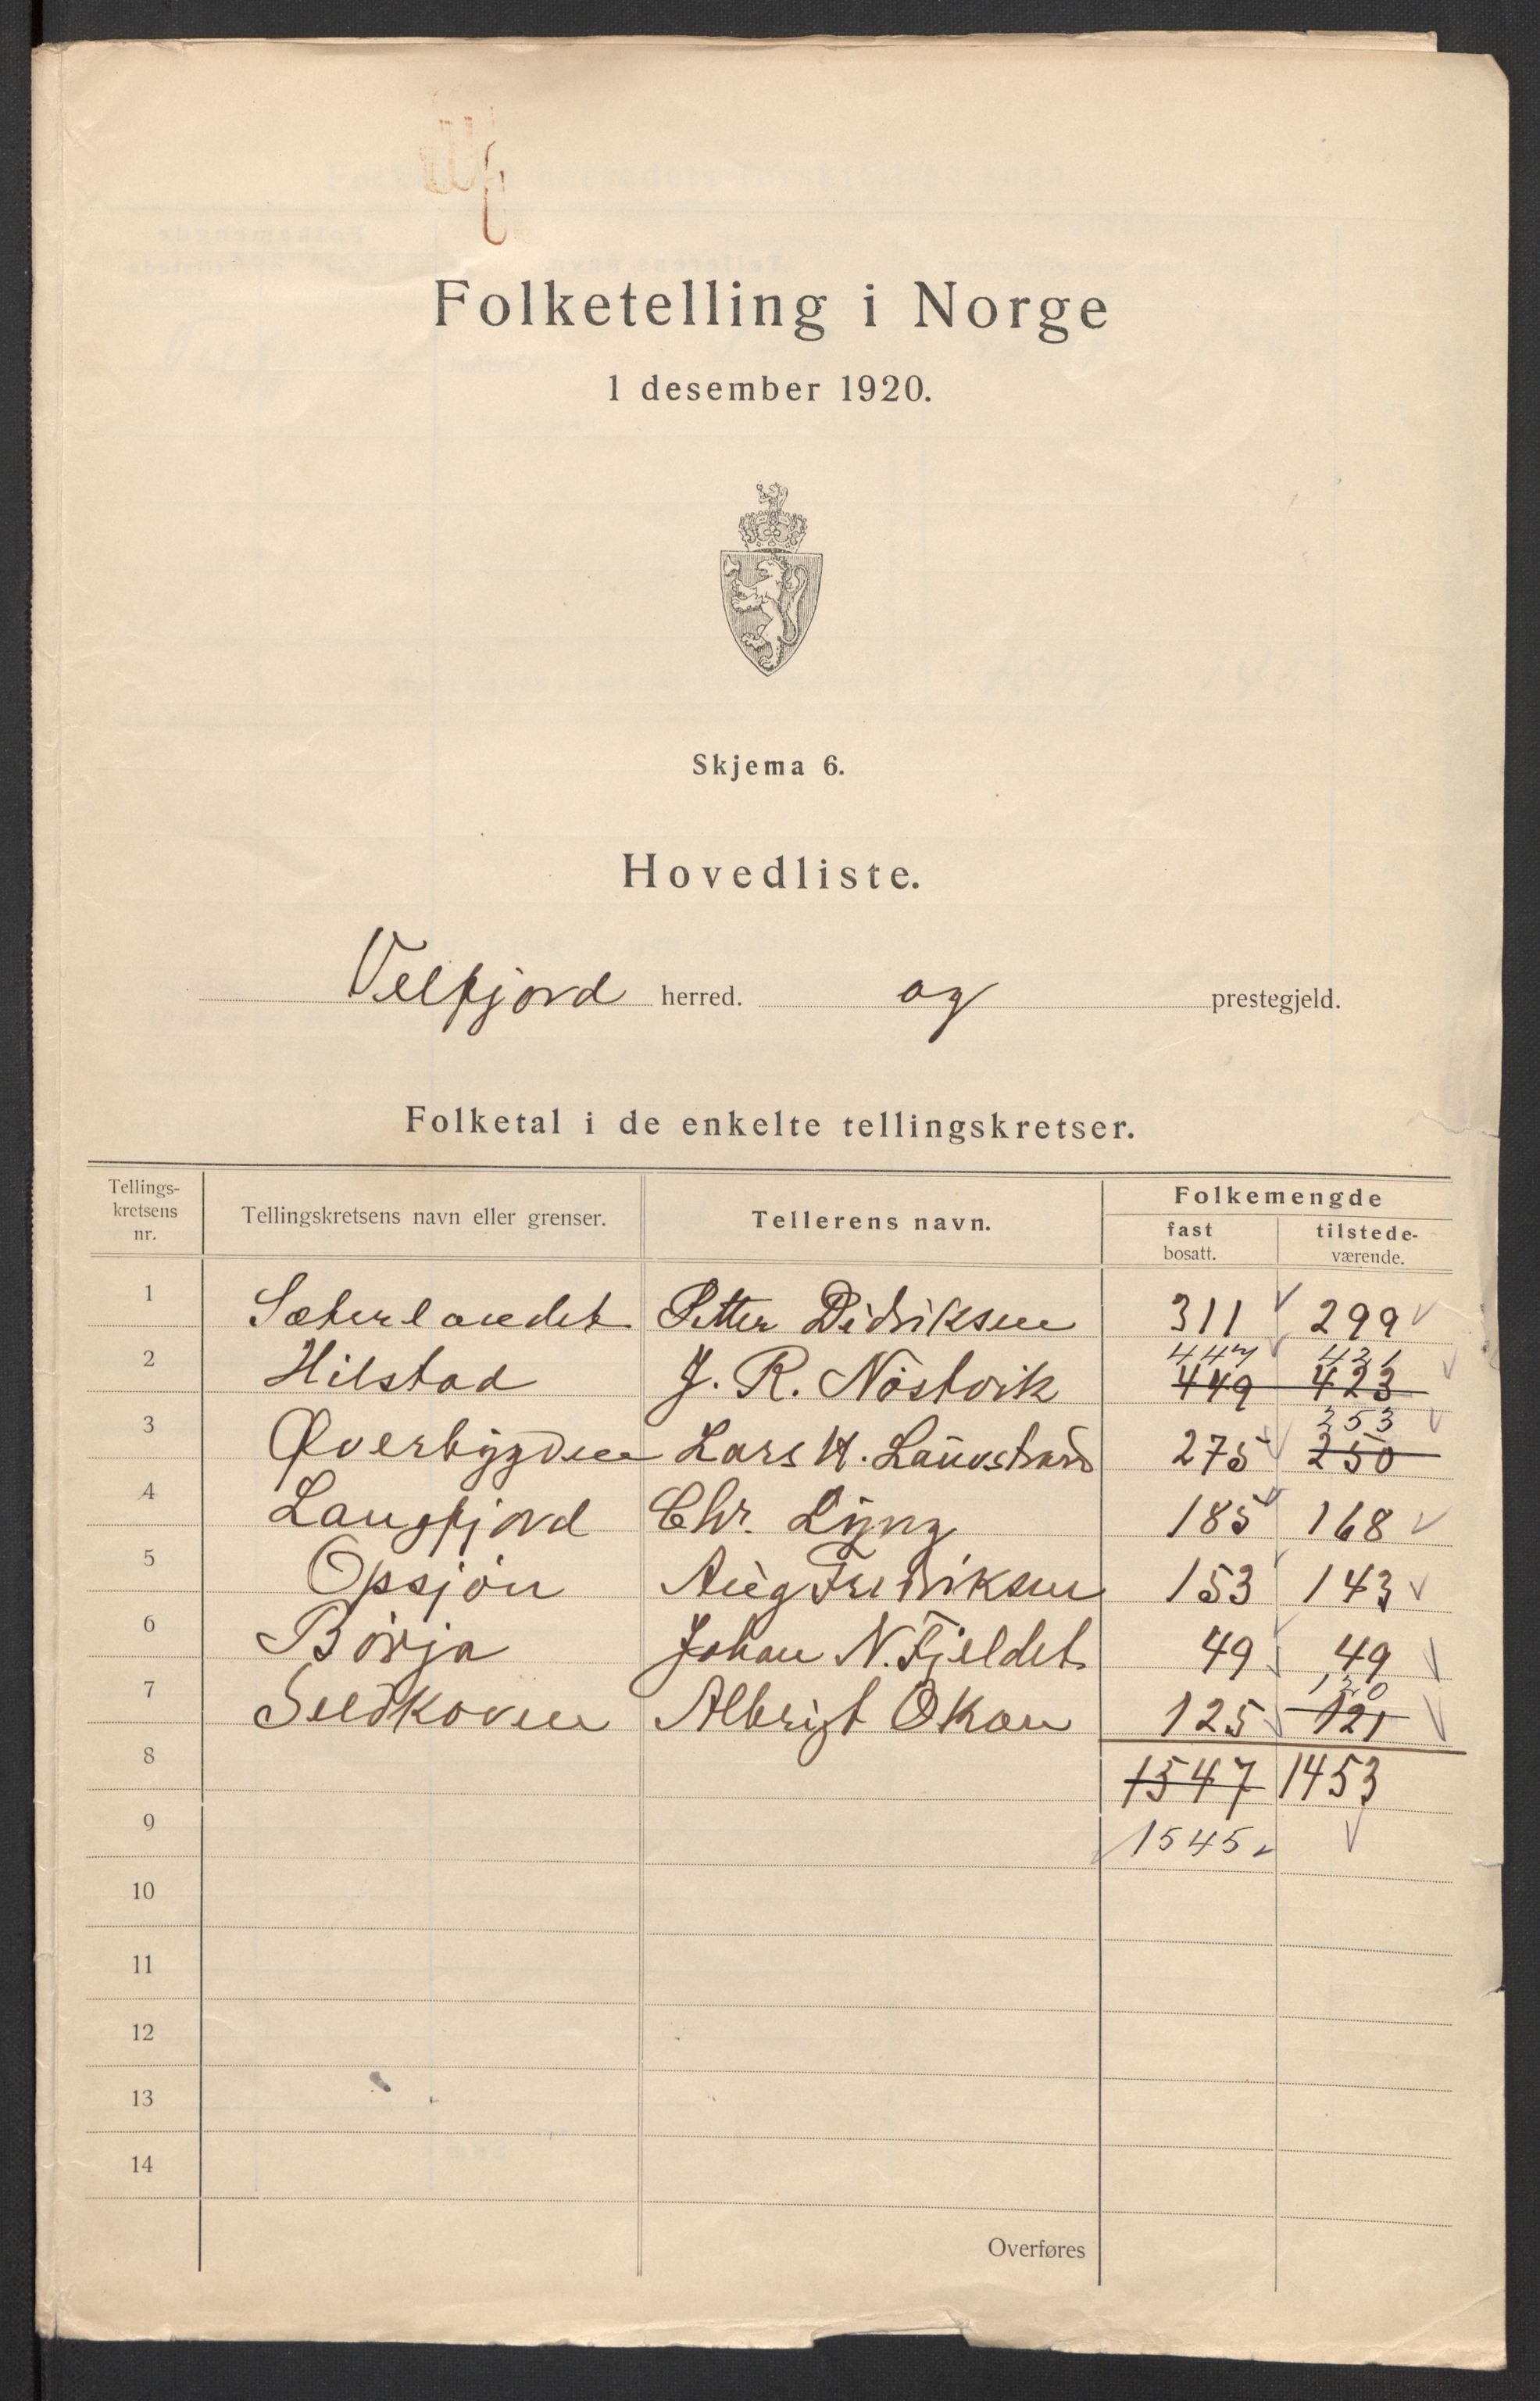 Folketelling i Norge
1 desember 1920.
Skjema 6.
Hovedliste.
Velfjord herred. og prestegjeld.
Folketal i de enkelte tellingskretser.
Tellings-
kretsens
nr.
Tellingskretsens navn eller grenser.
Tellerens navn.
Folkemengde
fast
bosatt.
tilstede-
værende.
1 Sæterlandet Petter Didriksen 311 299
447 421
2 Hilstad J. R. Nöstvik 449 423
253
3 Øverbygden Lars H. 275 250
4 Langfjord Chr. Lyng 185 168
5 Opsjön Aug Fredriksen 153 143
6 Börja Johan N. Fjeldet 49 49
120
7 Albrigt Okan 125 121
8 1547 1453
9 1545
10
11
12
13
14
Overføres